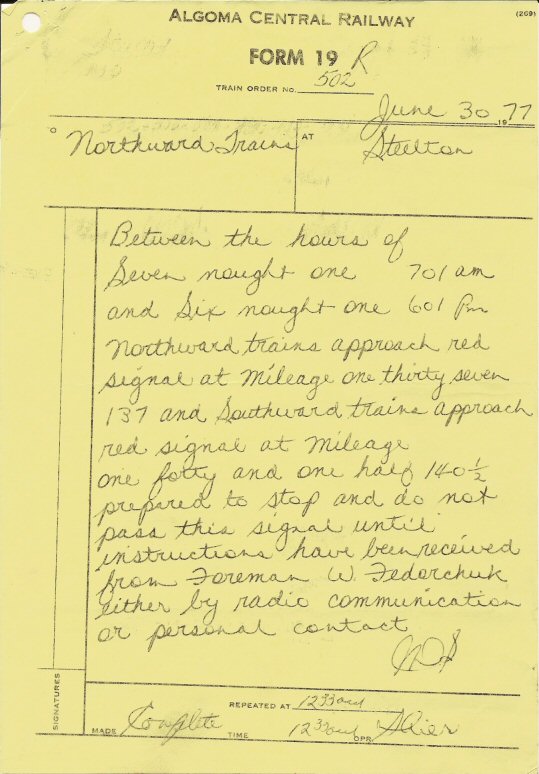 ALGOMA CENTRAL RAILWAY
(269)
FORM 19 R
TRAIN ORDER NO. 502
June 30 1977
TO Northward Trains AT Steelton
Between the hours of
Seven nought one 701 am
and Six nought one 601 Pm
Northward trains approach red
signal at Mileage one thirty seven
137 and Southward trains approach
red signal at Mileage
one forty and one half 140 ½
prepared to stop and do not
pass this signal until
instructions have been received
from Foreman W. Fedorchuk
either by radio communication
or personal contact
SIGNATURES
REPEATED AT 1233 am
MADE Complete TIME 1233 am OPR.